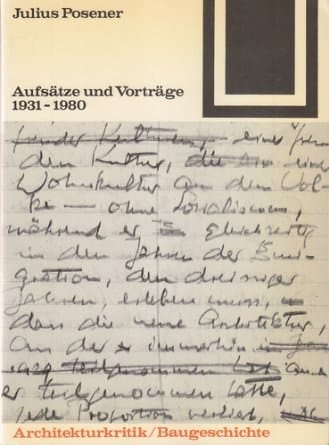 Julius Posener
Aufsätze und Vorträge
1931-1980
Kultur, die eine
Wohnkultur an dem Vol
ke — ohne Sozialismus,
während er gleichzeitig
in den Jahren der Emi-
gration, den dreissiger
Jahren, erleben muss,
dass die neue Architektur,
an der immerhin
1929 teilgenommen hat auch
er teilgenommen hatte,
jede Proportion verliert,
Architekturkritik/Baugeschichte